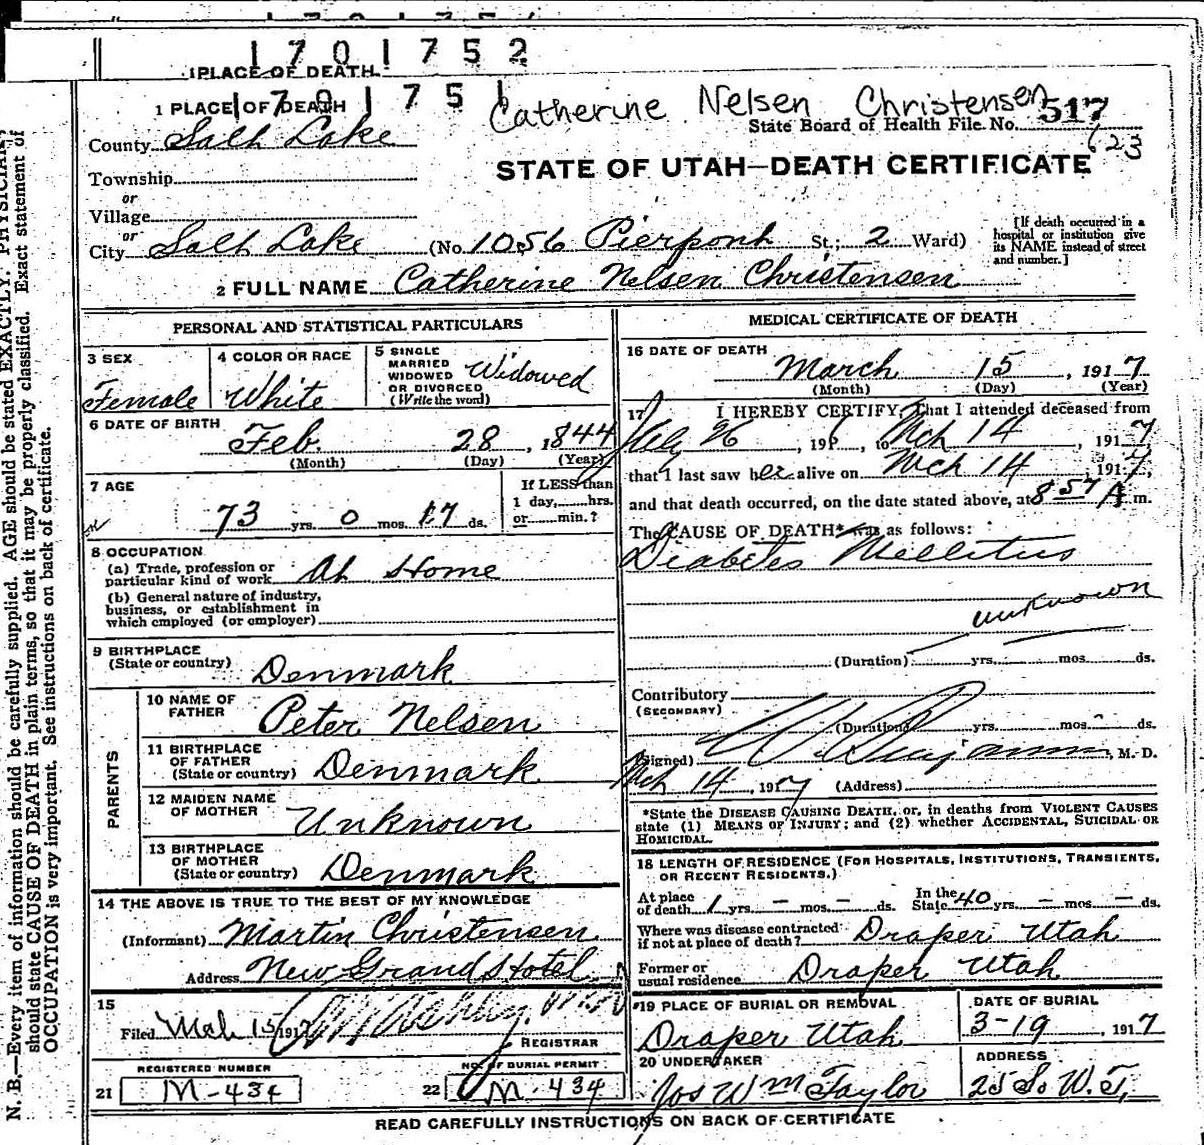 1 7 0 1 7 5 2
1 PLACE OF DEATH
1 7 0 1 7 5 1
1 PLACE OF DEATH
Catherine Nelsen Christensen
State Board of Health File No. 517
623
County Salt Lake
STATE OF UTAH—DEATH CERTIFICATE
Township
or
Village
or
City Salt Lake (No. 1056 Pierpont St.; 2 Ward)
[If death occurred in a
hospital or institution give
its NAME instead of street
and number.]
2 FULL NAME Catherine Nelsen Christensen
PERSONAL AND STATISTICAL PARTICULARS
3 SEX
Female
4 COLOR OR RACE
White
5 SINGLE
MARRIED
WIDOWED
OR DIVORCED
(Write the word)
Widowed
6 DATE OF BIRTH
Feb. 28, 1844
(Month) (Day) (Year)
7 AGE
73 yrs. 0 mos. 17 ds.
If LESS than
1 day, hrs.
or min.?
8 OCCUPATION
(a) Trade, profession or
particular kind of work At Home
(b) General nature of industry,
business, or establishment in
which employed (or employer)
9 BIRTHPLACE
(State or country) Denmark
PARENTS
10 NAME OF
FATHER Peter Nelsen
11 BIRTHPLACE
OF FATHER
(State or country) Denmark
12 MAIDEN NAME
OF MOTHER Unknown
13 BIRTHPLACE
OF MOTHER
(State or country) Denmark
14 THE ABOVE IS TRUE TO THE BEST OF MY KNOWLEDGE
(Informant) Martin Christensen
Address New Grand Hotel
15
Filed Mch 15 1917
REGISTRAR
REGISTERED NUMBER
21 M-434
NO. OF BURIAL PERMIT
22 M-434
MEDICAL CERTIFICATE OF DEATH
16 DATE OF DEATH
March 15, 1917
(Month) (Day) (Year)
17 I HEREBY CERTIFY, That I attended deceased from
26, 191 , to Mch 14, 1917,
that I last saw her alive on Mch 14, 1917,
and that death occurred, on the date stated above, at 8 57 A m.
The CAUSE OF DEATH* was as follows:
Diabetes Mellitus
unknown
(Duration) yrs. mos. ds.
Contributory
(SECONDARY)
(Duration) yrs. mos. ds.
(Signed) Benjamin, M. D.
Mch 14, 1917 (Address)
*State the DISEASE CAUSING DEATH, or, in deaths from VIOLENT CAUSES
state (1) MEANS OF INJURY; and (2) whether ACCIDENTAL, SUICIDAL OR
HOMICIDAL.
18 LENGTH OF RESIDENCE (FOR HOSPITALS, INSTITUTIONS, TRANSIENTS,
OR RECENT RESIDENTS.)
At place
of death 1 yrs. — mos. — ds.
In the
State 40 yrs. — mos. — ds.
Where was disease contracted
if not at place of death? Draper Utah
Former or
usual residence Draper Utah
19 PLACE OF BURIAL OR REMOVAL
Draper Utah
DATE OF BURIAL
3-19, 1917
20 UNDERTAKER
Jos Wm Taylor
ADDRESS
25 So. W. T.
READ CAREFULLY INSTRUCTIONS ON BACK OF CERTIFICATE
N. B.—Every item of information should be carefully supplied. AGE should be stated EXACTLY. PHYSICIAN
should state CAUSE OF DEATH in plain terms, so that it may be properly classified. Exact statement of
OCCUPATION is very important. See instructions on back of certificate.